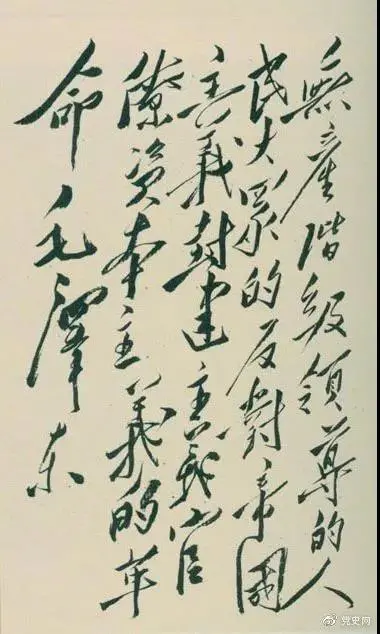 無產階級領導的人
民大眾的反對帝國
主義封建主義官
僚資本主義的革
命毛澤东
党史网